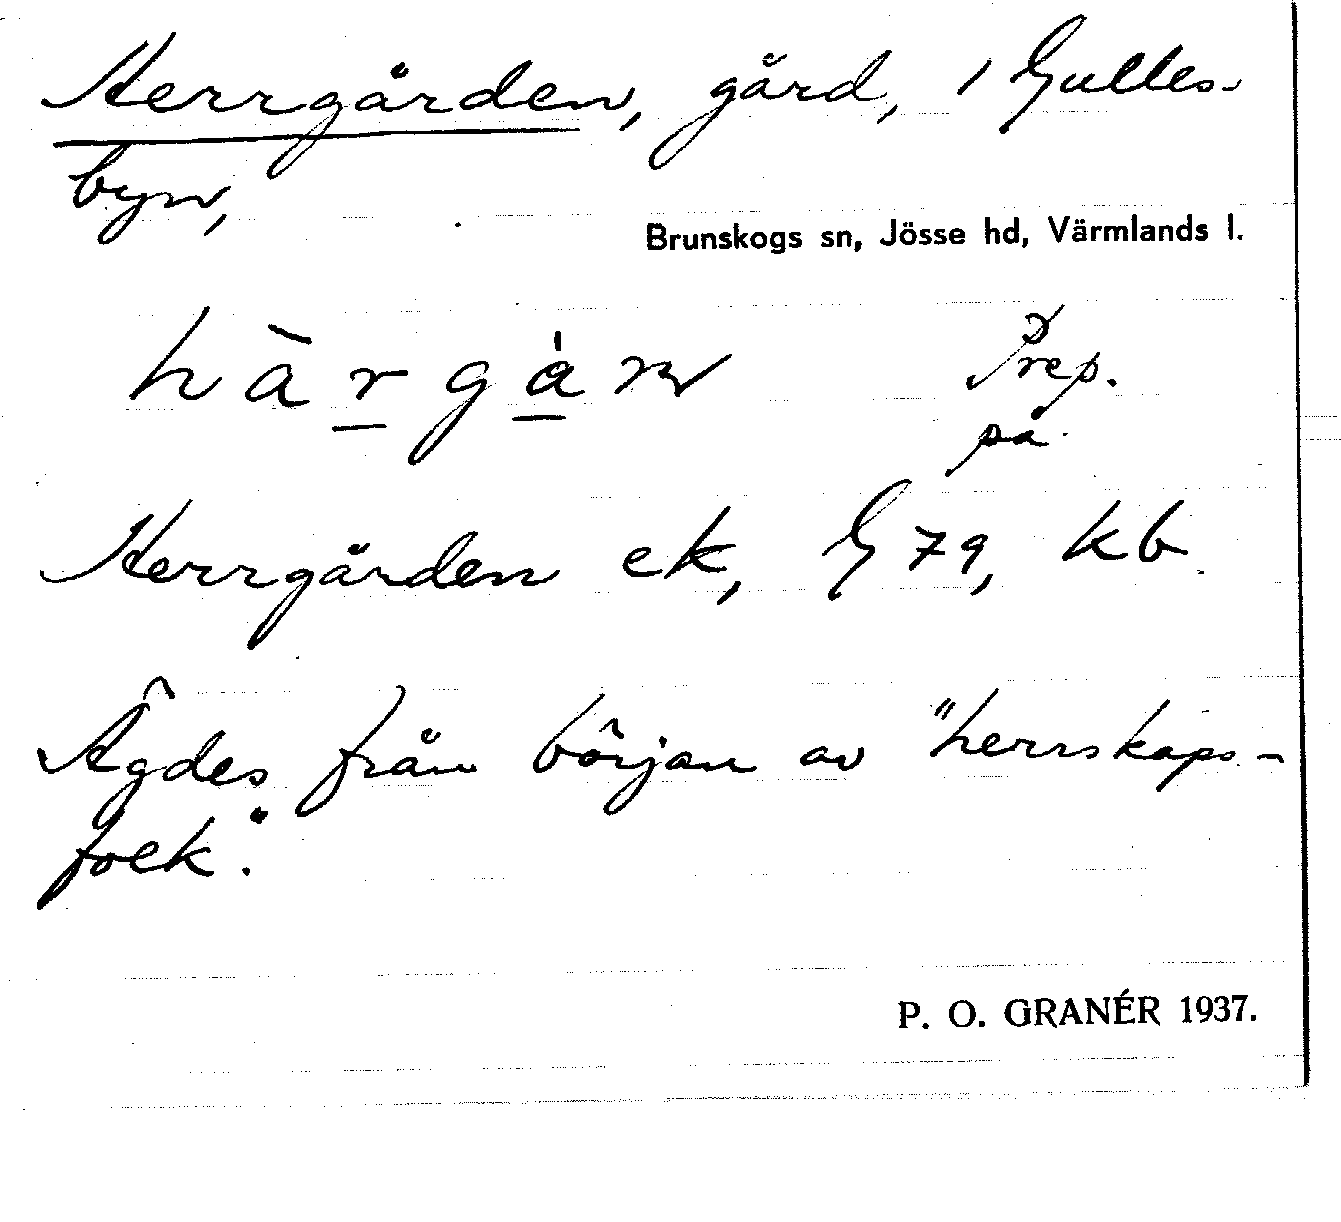 Herrgården, gård, i Gulles-
byn,
Brunskogs sn, Jösse hd, Värmlands l.
hàrgȧn Prep.
på
Herrgården ek, G 79, kb
Ägdes från början av "herrskaps-
folk".
P. O. GRANÉR 1937.